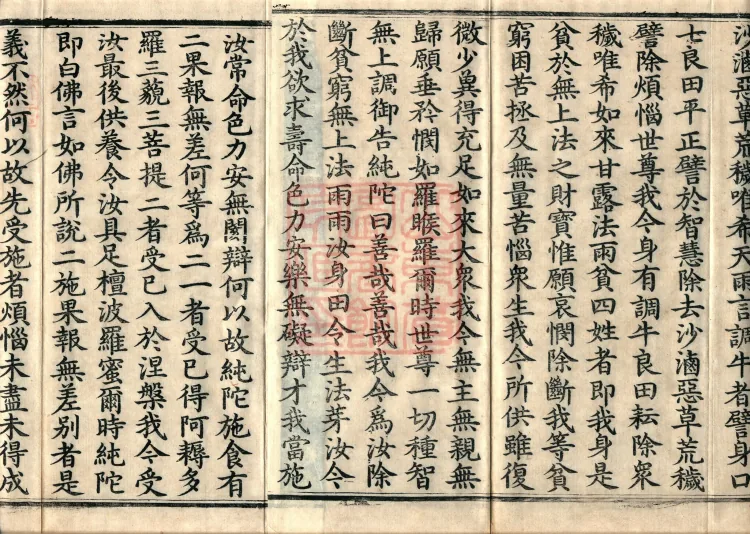 沙滷惡草荒穢唯希天雨言調牛者譬身口
七良田平正譬於智慧除去沙滷惡草荒穢
譬除煩惱世尊我今身有調牛良田耘除衆
穢唯希如來甘露法雨貧四姓者即我身是
貧於無上法之財寶惟願哀憫除斷我等貧
窮困苦拯及無量苦惱衆生我今所供雖復
微少冀得充足如來大衆我今無主無親無
歸願垂矜憫如羅睺羅爾時世尊一切種智
無上調御告純陀曰善哉善哉我今爲汝除
斷貧窮無上法雨雨汝身田令生法芽汝今
於我欲求壽命色力安樂無礙辯才我當施
汝常命色力安無閡辯何以故純陀施食有
二果報無差何等爲二一者受已得阿耨多
羅三藐三菩提二者受已入於涅槃我今受
汝最後供養令汝具足檀波羅蜜爾時純陀
即白佛言如佛所說二施果報無差別者是
義不然何以故先受施者煩惱未盡未得成